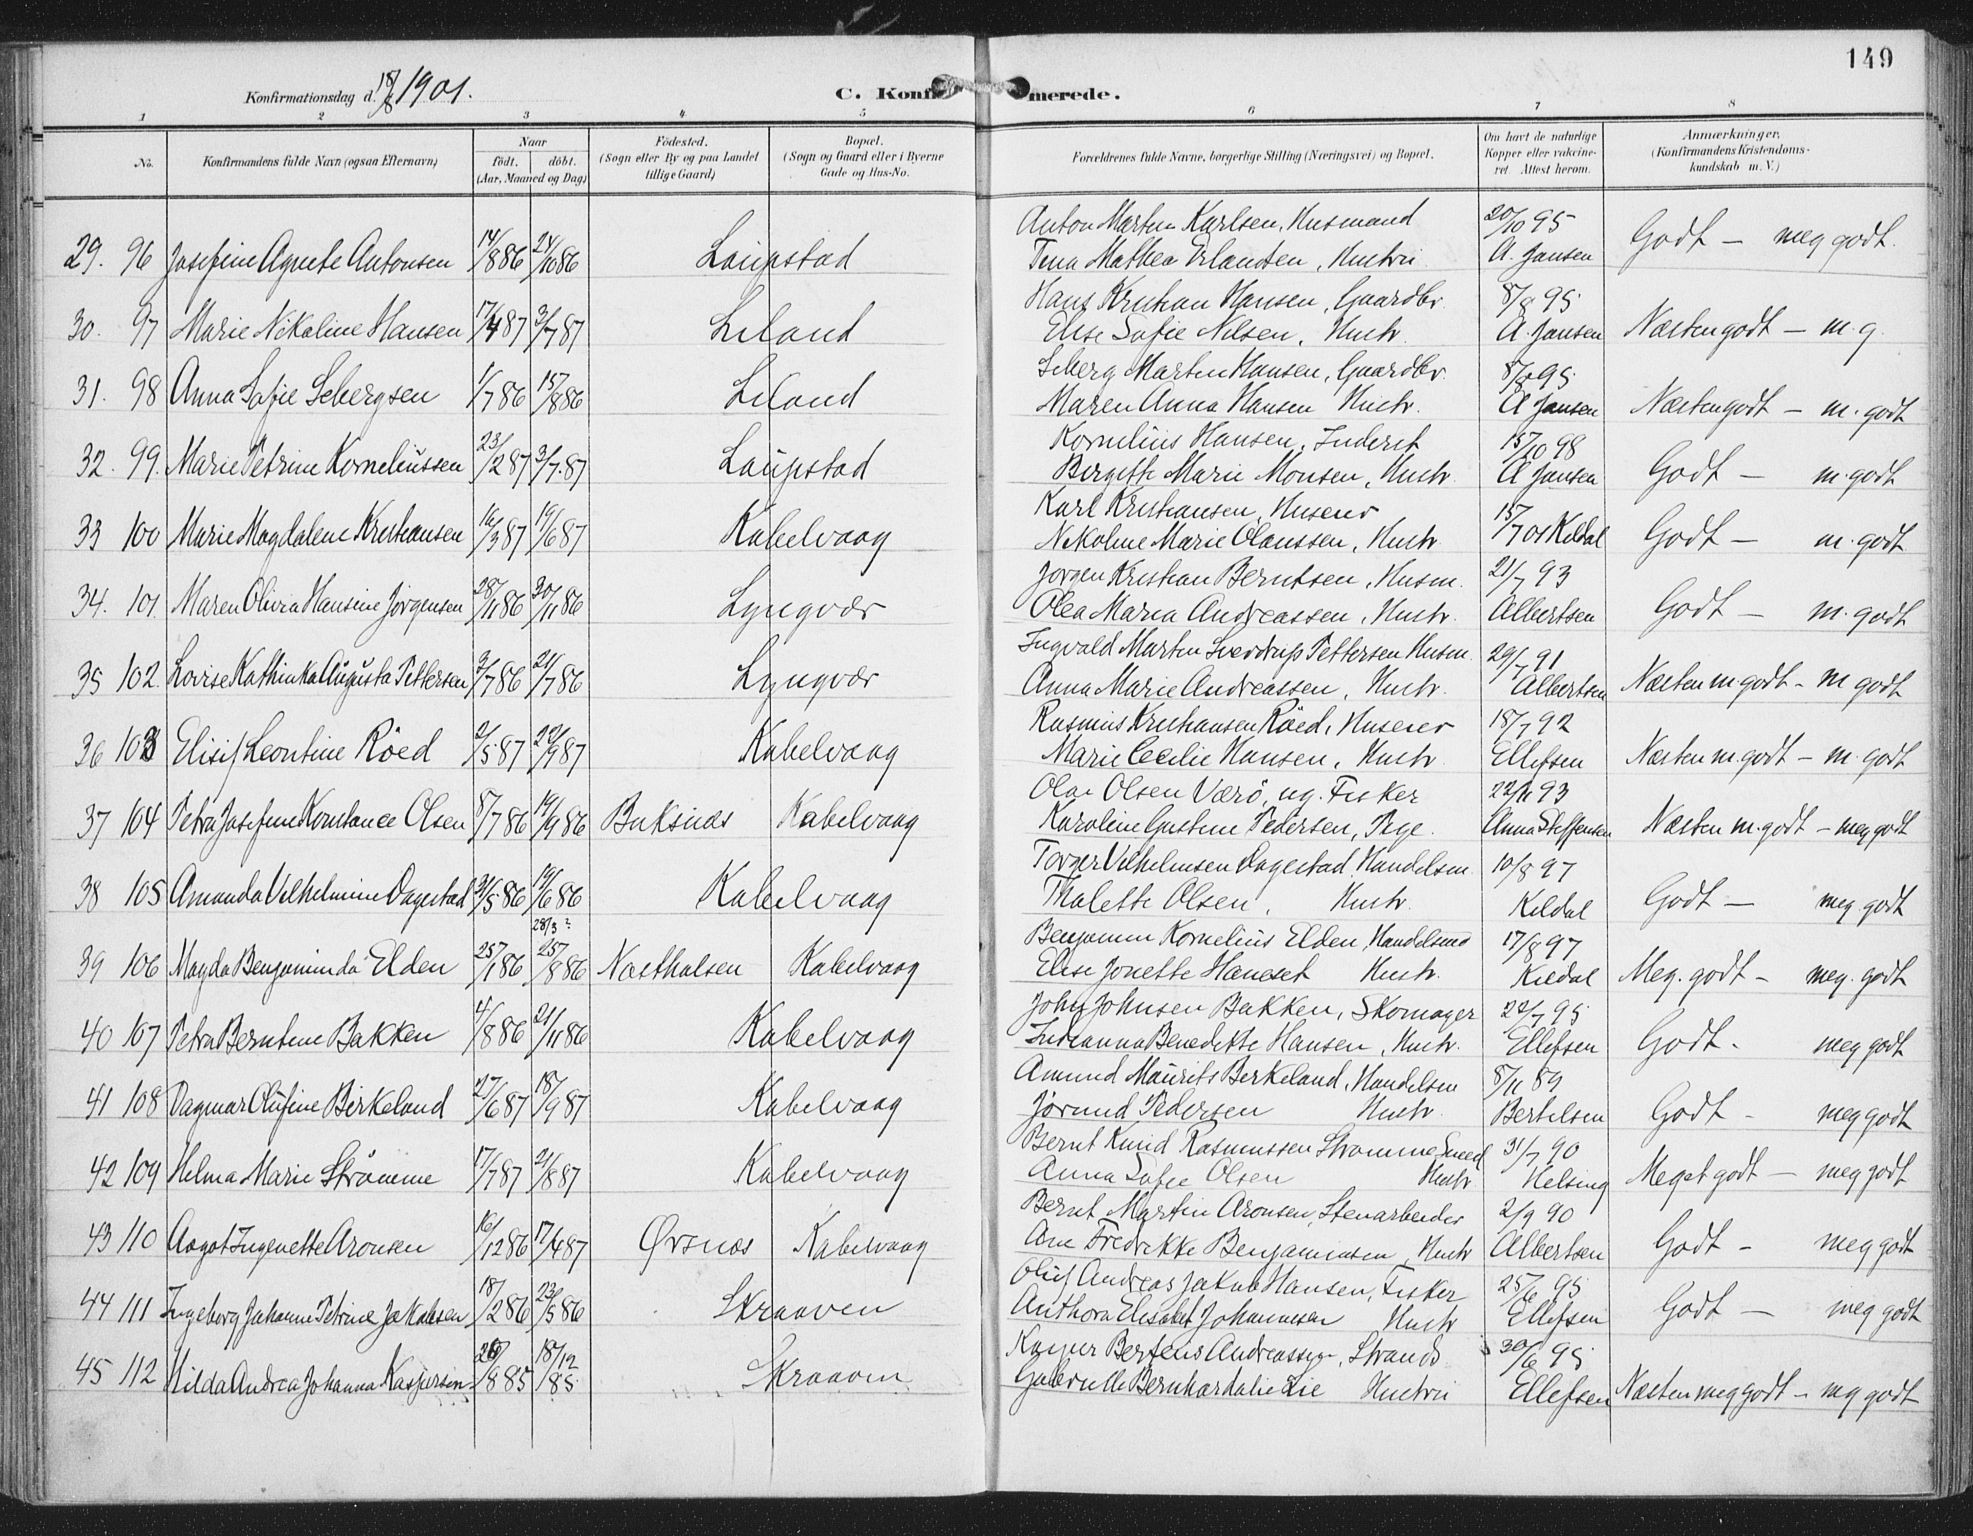 149
Konfirmationsdag d. 18/8 1901.
C. Konfirmerede.
1 2 3 4 5 6 7 8
No. Konfirmandens fulde Navn (ogsaa Efternavn)
Naar
födt. döbt.
(Aar, Maaned og Dag)
Födested.
(Sogn eller By og paa Landet
tillige Gaard)
Bopæl.
(Sogn og Gaard eller i Byerne
Gade og Hus-No.
Forældrenes fulde Navne, borgerlige Stilling (Næringsvei) og Bopæl.
Om havt de naturlige
Kopper eller vakcine-
ret. Attest herom.
Anmærkninger.
(Konfirmandens Kristendoms-
kundskab m. V.)
Anton Martin Karlsen, Husmand 20/10 95
29. 96 Josefine Agnete Antonsen 14/8 86 24/10 86 Laupstad Tina Mathea Erlandsen, Hustru A. Jansen Godt — meg godt.
Hans Kristian Hansen, Gaardbr. 8/8 95
30. 97 Marie Nikoline Hansen 17/4 87 3/7 87 Liland Elise Sofie Nilsen, Hustr. A. Jansen Næsten godt — m. g.
Seberg Martin Hansen, Gaardbr. 8/8 95
31. 98 Anna Sofie Sebergsen 1/7 86 15/8 86 Liland Maren Anna Hansen Hustr. A Jansen Næsten godt — m. godt
Kornelius Hansen, Inderst 15/10 98
32. 99. Marie Petrine Korneliussen 23/2 87 3/7 87 Laupstad Bergitte Marie Monsen, Hustr. A Jansen Godt — m. godt
Karl Kristiansen, Huseier 15/7 01 Kildal
33 100 Marie Magdalene Kristiansen 16/3 87 19/6 87 Kabelvaag Nikoline Marie Olaussen, Hustr. Godt — m. godt
Jørgen Kristian Berntsen, Husm. 21/7 93
34. 101. Maren Olivia Hansine Jørgensen 28/11 86 30/11 86 Lyngvær Olea Maria Andreassen, Hustr. Albertsen Godt — m. godt
Ingvald Martin Sverdrup Pettersen Husm. 29/7 91
35 102. Lovise Kathinka Augusta Pettersen 3/7 86 21/7 86 Lyngvær Anna Marie Andreassen, Hustr. Albertsen Næsten m. godt - m godt
Rasmus Kristiansen Röed, Huseier 18/7 92
36 103 Elisif Leontine Röed 2/5 87 22/9 87 Kabelvaag Marie Cecilie Hansen, Hustr. Ellefsen Næsten m. godt — m. godt
Olai Olsen Værö, ug. Fisker 22/11 93
37 104 Petra Josefine Konstance Olsen 8/7 86 19/9 86 Buksnæs Kabelvaag Karoline Gustine Pedersen, Pige. Anna Steffensen Næsten m. godt — meg godt
Torger Vilhelmsen Dagestad, Handelsm. 10/8 97
38 105 Amanda Vilhelmine Dagestad 31/5 86 19/6 86 Kabelvaag Thalette Olsen, Hustr. Kildal Godt — meg. godt
28/3 ?
Benjamin Kornelius Elden, Handelsmd 17/8 97
39 106 Magda Benjaminda Elden 25/1 86 25/8 86 Kabelvaag Elise Jonette Hanset Hustr. Kildal Meg. godt — meg. godt
John Johnsen Bakken, Skomager 22/7 95
40 107 Petra Berntine Bakken 4/8 86 21/11 86 Kabelvaag Indianna Benedikte Hansen, Hustr. Ellefsen Godt - meg godt
Amund Maurits Berkeland, Handelsm 8/11 89
41 108 Dagmar Olufine Birkeland 27/6 87 18/9 87 Kabelvaag Jørund Pedersen Hustr. Bertelsen Godt - meg godt
Bernt Knud Rasmussen Strømme Smed 31/7 90
42 109 Helma Marie Strömme 17/7 87 21/8 87 Kabelvaag Anna Sofie Olsen Hustr Helsing Meget godt — meg godt
Bernt Martin Aronsen, Stenarbeider 2/9 90
43 110 Aagot Ingenette Aronsen 16/12 86 17/4 87 Ørsnæs Kabelvaag Ane Fredrikke Benjaminsen, Hustr Albertsen Godt - meg godt
Oluf Andreas Jakob Hansen, Fisker 25/6 95
44 111 Ingeborg Johanne Petrine Jakobsen 18/2 86 23/5 86 Skraaven Anthora Elisabet Johannesen Hustr Ellefsen Godt — meg godt
Kasper Bertens Andreassen, Strands. 30/6 95
45 112 Hilda Andrea Johanna Kaspersen 8 85 18/12 85 Skraaven Gabrielle Bernhardalie Lie Hustru Ellefsen Næsten meg godt — meg godt